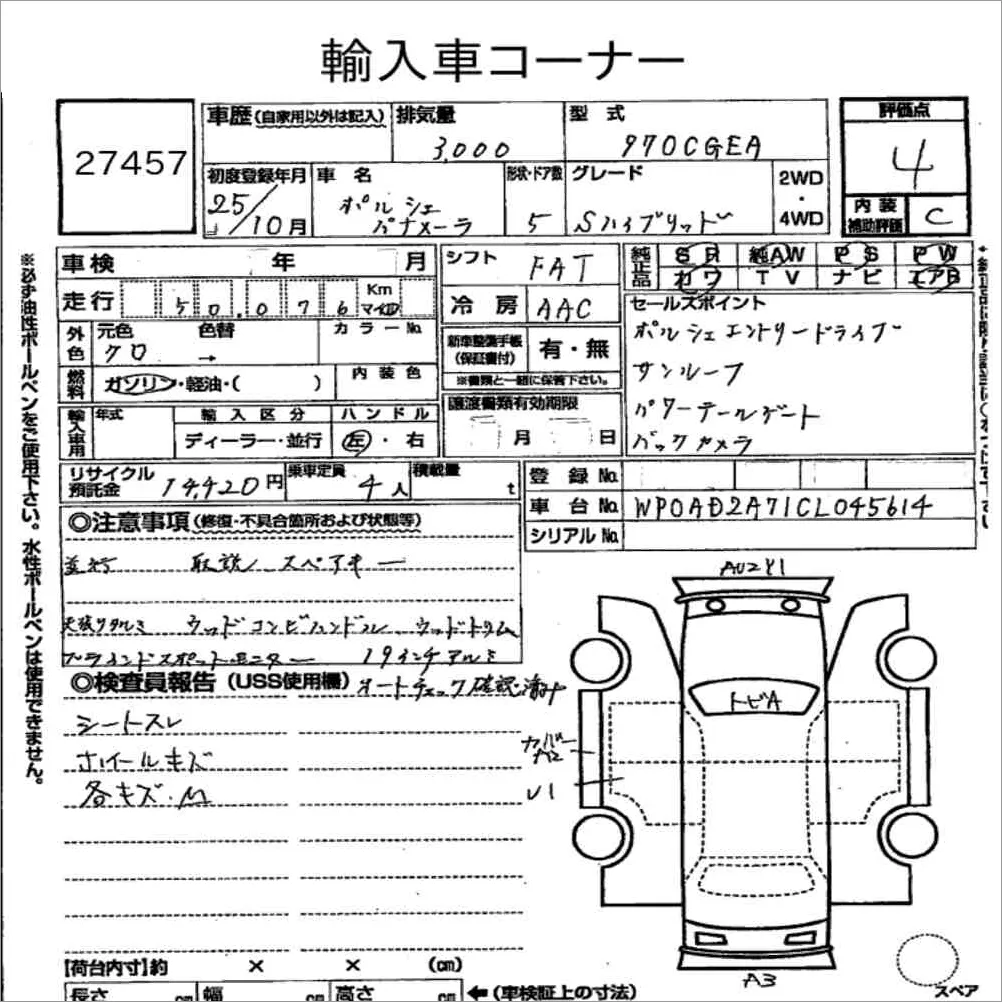 輸入車コーナー
27457
車歴(自家用以外は記入)
排気量
3,000
型式
970CGEA
評価点
4
内装補助評価
C
初度登録年月
25/10月
車名
ポルシェ
パナメーラ
形状・ドア数
5
グレード
Sハイブリッド
2WD・4WD
車検 年 月
シフト
FAT
純正品
SR 純AW PS PW
カワ TV ナビ エアB
走行 50,076 Km マイル
冷房
AAC
セールスポイント
ポルシェエントリードライブ
サンルーフ
パワーテールゲート
バックカメラ
外色
元色 色替 カラーNo.
クロ →
新車整備手帳(保証書付)
有・無
※書類と一緒に保管下さい。
燃料
ガソリン・軽油・( )
内装色
輸入車用
年式
輸入区分
ディーラー・並行
ハンドル
左・右
譲渡書類有効期限
月 日
リサイクル預託金
14,420円
乗車定員
4人
積載量
t
登録No.
車台No.
WP0AD2A71CL045614
シリアルNo.
◎注意事項(修復・不具合箇所および状態等)
並行 取説、スペアキー
天張りタルミ ウッドコンビハンドル ウッドトリム
ブラインドスポットモニター 19インチアルミ
◎検査員報告(USS使用欄)
オートチェック確認済み
シートスレ
ホイールキズ
各キズ・M
AU2Y1
トビA
カバーA2
U1
A3
スペア
【荷台内寸】約 × × (cm)
長さ cm 幅 cm 高さ cm ←(車検証上の寸法)
※必ず油性ボールペンをご使用下さい。水性ボールペンは使用できません。